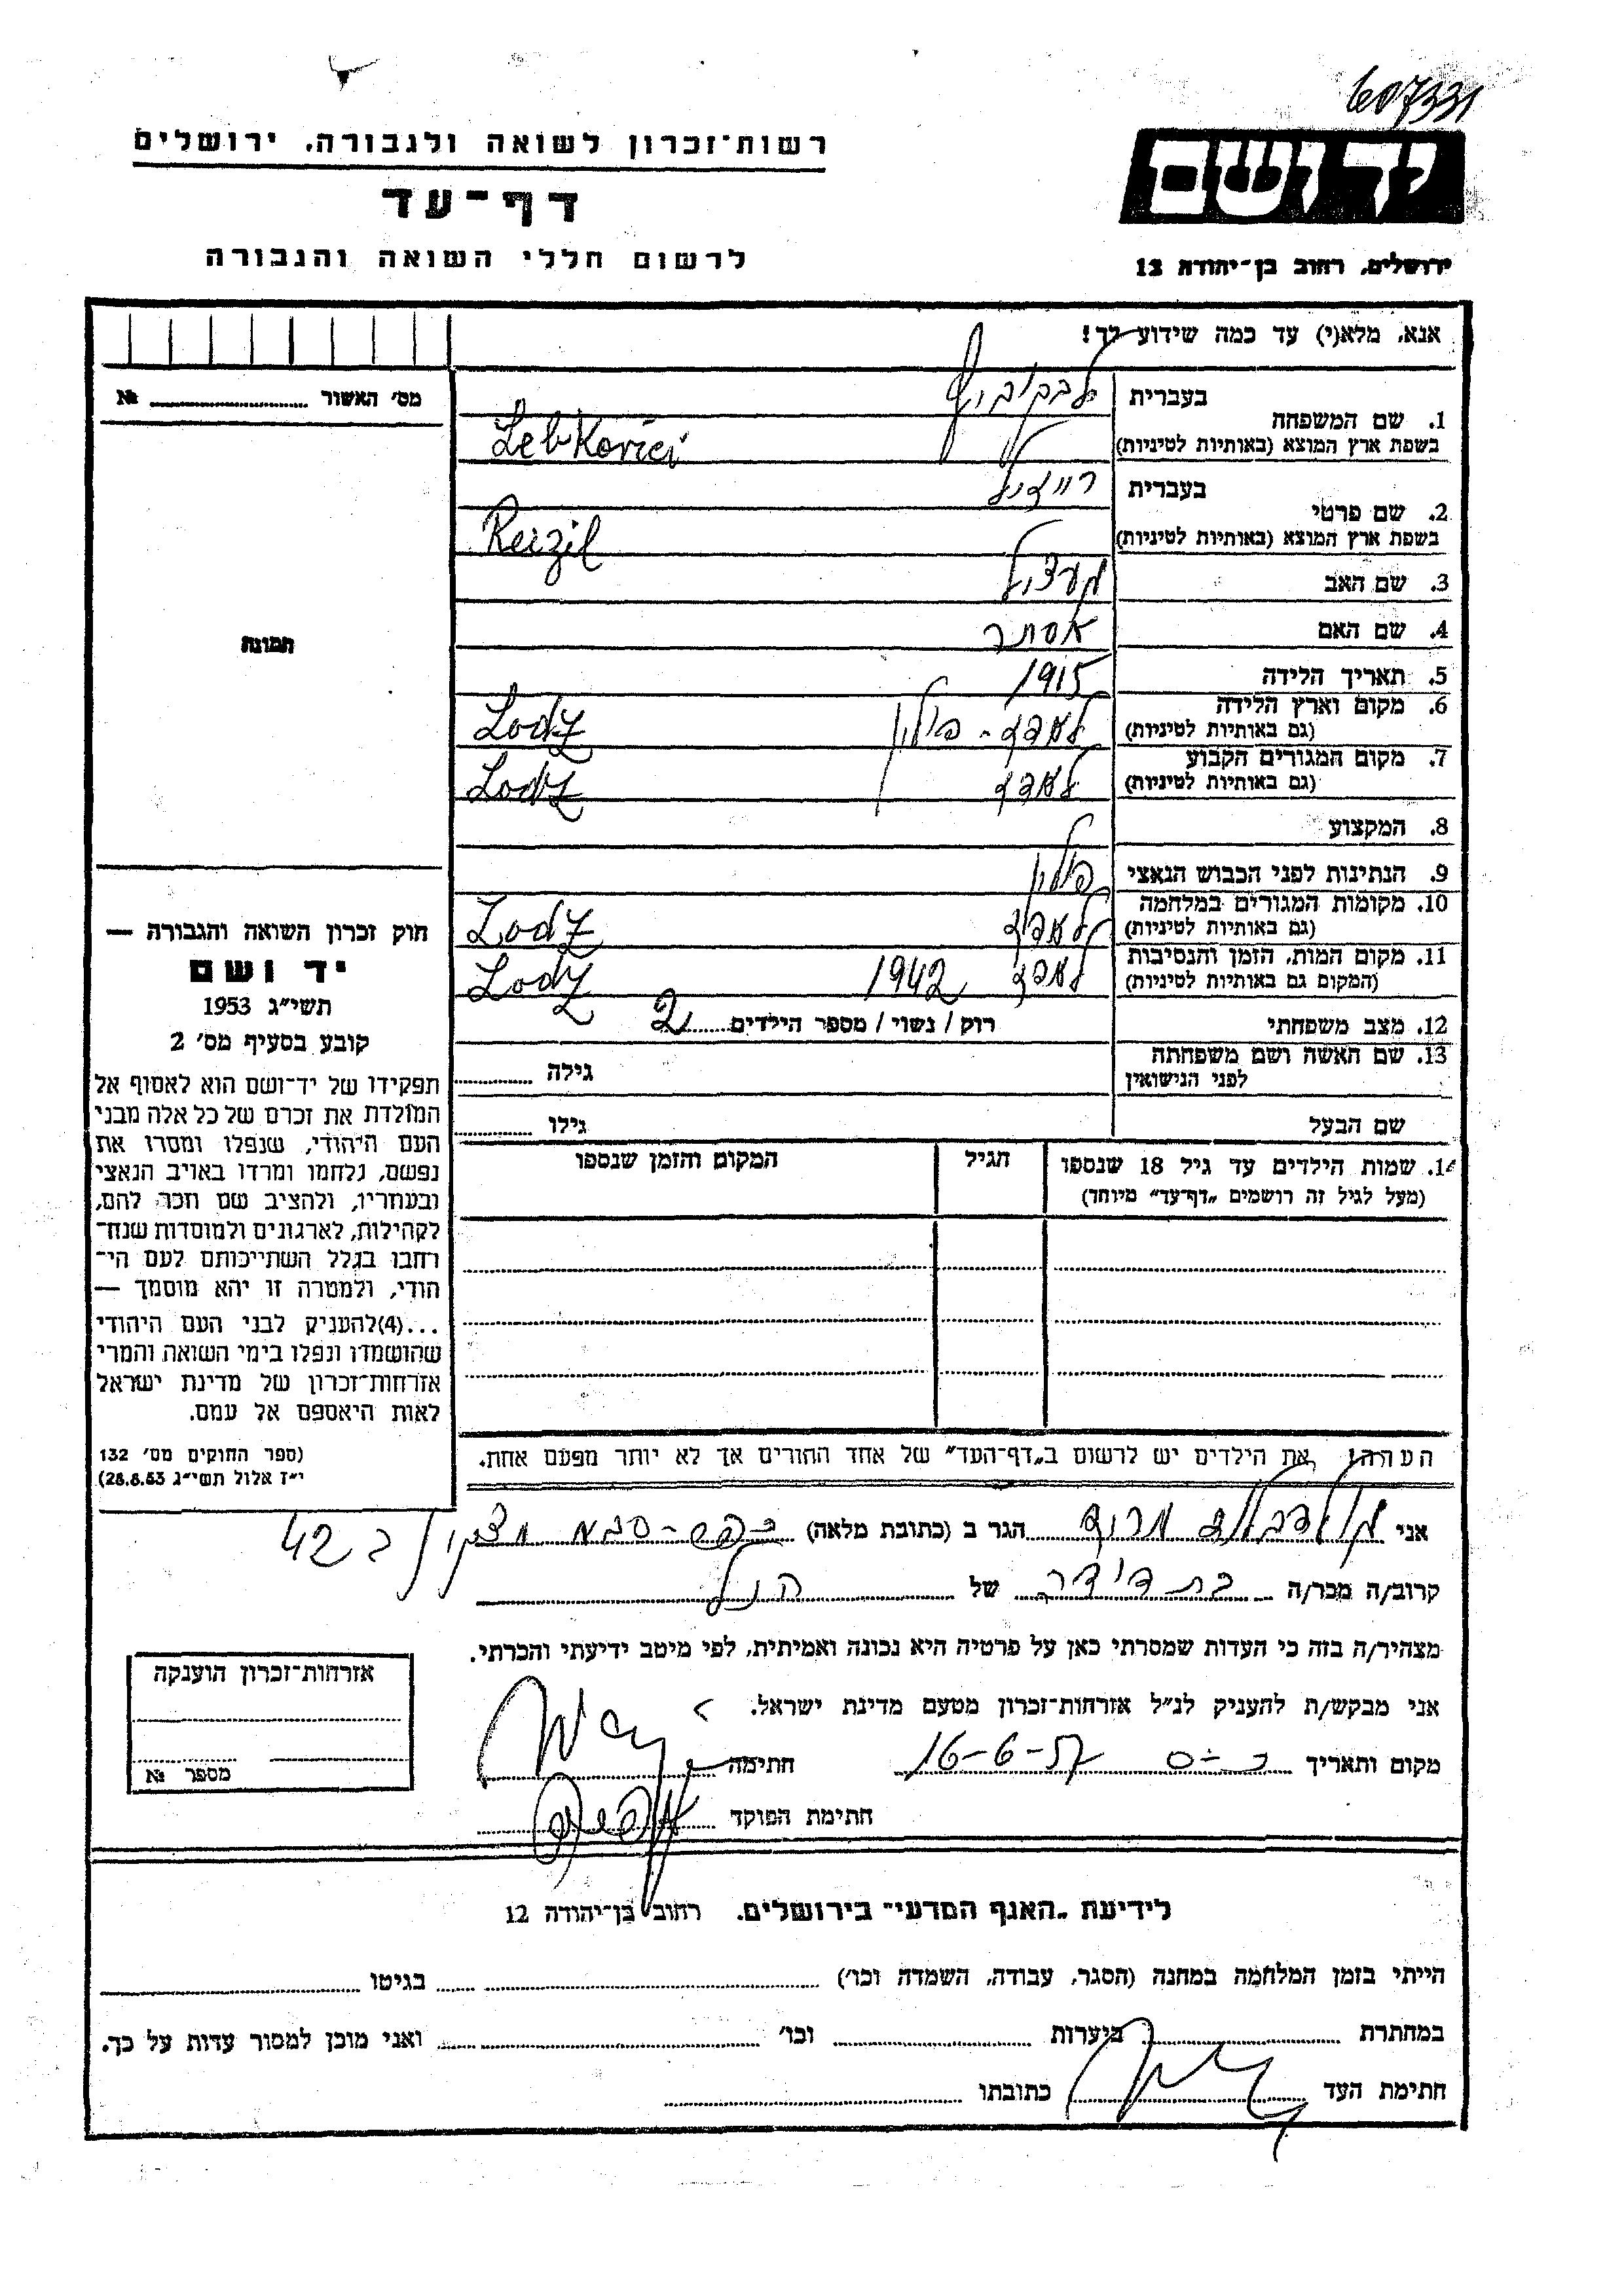 607331
רשות־זכרון לשואה ולגבורה, ירושלים
יד ושם
דף־עד
לרשום חללי השואה והגבורה
ירושלים, רחוב בן־יהודה 12
אנא, מלא(י) עד כמה שידוע לך!
מס׳ האשור № 
1. שם המשפחה
בעברית לבקוביץ
בשפת ארץ המוצא (באותיות לטיניות) Lebkovici
2. שם פרטי
בעברית רייזיל
בשפת ארץ המוצא (באותיות לטיניות) Reizil
3. שם האב
4. שם האם אסתר
תמונה
5. תאריך הלידה 1915
6. מקום וארץ הלידה
(גם באותיות לטיניות) פולין Lodz
7. מקום המגורים הקבוע
(גם באותיות לטיניות) Lodz
8. המקצוע
9. הנתינות לפני הכבוש הנאצי פולין
10. מקומות המגורים במלחמה
(גם באותיות לטיניות) Lodz
11. מקום המות, הזמן והנסיבות
(המקום גם באותיות לטיניות) 1942 Lodz
12. מצב משפחתי רוק / נשוי / מספר הילדים 2
13. שם האשה ושם משפחתה
לפני הנישואין גילה
שם הבעל גילו
14. שמות הילדים עד גיל 18 שנספו
(מעל לגיל זה רושמים „דף־עד״ מיוחד)
הגיל
המקום והזמן שנספו
חוק זכרון השואה והגבורה —
יד ושם
תשי״ג 1953
קובע בסעיף מס׳ 2
תפקידו של יד־ושם הוא לאסוף אל
המולדת את זכרם של כל אלה מבני
העם היהודי, שנפלו ומסרו את
נפשם, נלחמו ומרדו באויב הנאצי
ובעוזריו, ולהציב שם וזכר להם,
לקהילות, לארגונים ולמוסדות שנח־
רחבו בגלל השתייכותם לעם הי־
הודי, ולמטרה זו יהא מוסמך —
...(4)להעניק לבני העם היהודי
שהושמדו ונפלו בימי השואה והמרי
אזרחות־זכרון של מדינת ישראל
לאות היאספם אל עמם.
(ספר החוקים מס׳ 132
י״ז אלול תשי״ג 28.8.53)
הערה: את הילדים יש לרשום ב„דף־העד״ של אחד ההורים אך לא יותר מפעם אחת.
אני הגר ב (כתובת מלאה) כפר-סבא 42
קרוב/ה מכר/ה בת דודה של הנ״ל
מצהיר/ה בזה כי העדות שמסרתי כאן על פרטיה היא נכונה ואמיתית, לפי מיטב ידיעתי והכרתי.
אני מבקש/ת להעניק לנ״ל אזרחות־זכרון מטעם מדינת ישראל.
מקום ותאריך כ-ס 16-6-57 חתימה
חתימת הפוקד
אזרחות־זכרון הוענקה
מספר №
לידיעת „האגף המדעי״ בירושלים, רחוב בן־יהודה 12
הייתי בזמן המלחמה במחנה (הסגר, עבודה, השמדה וכו׳) בגיטו
במחתרת ביערות וכו׳ ואני מוכן למסור עדות על כך.
חתימת העד כתובתו